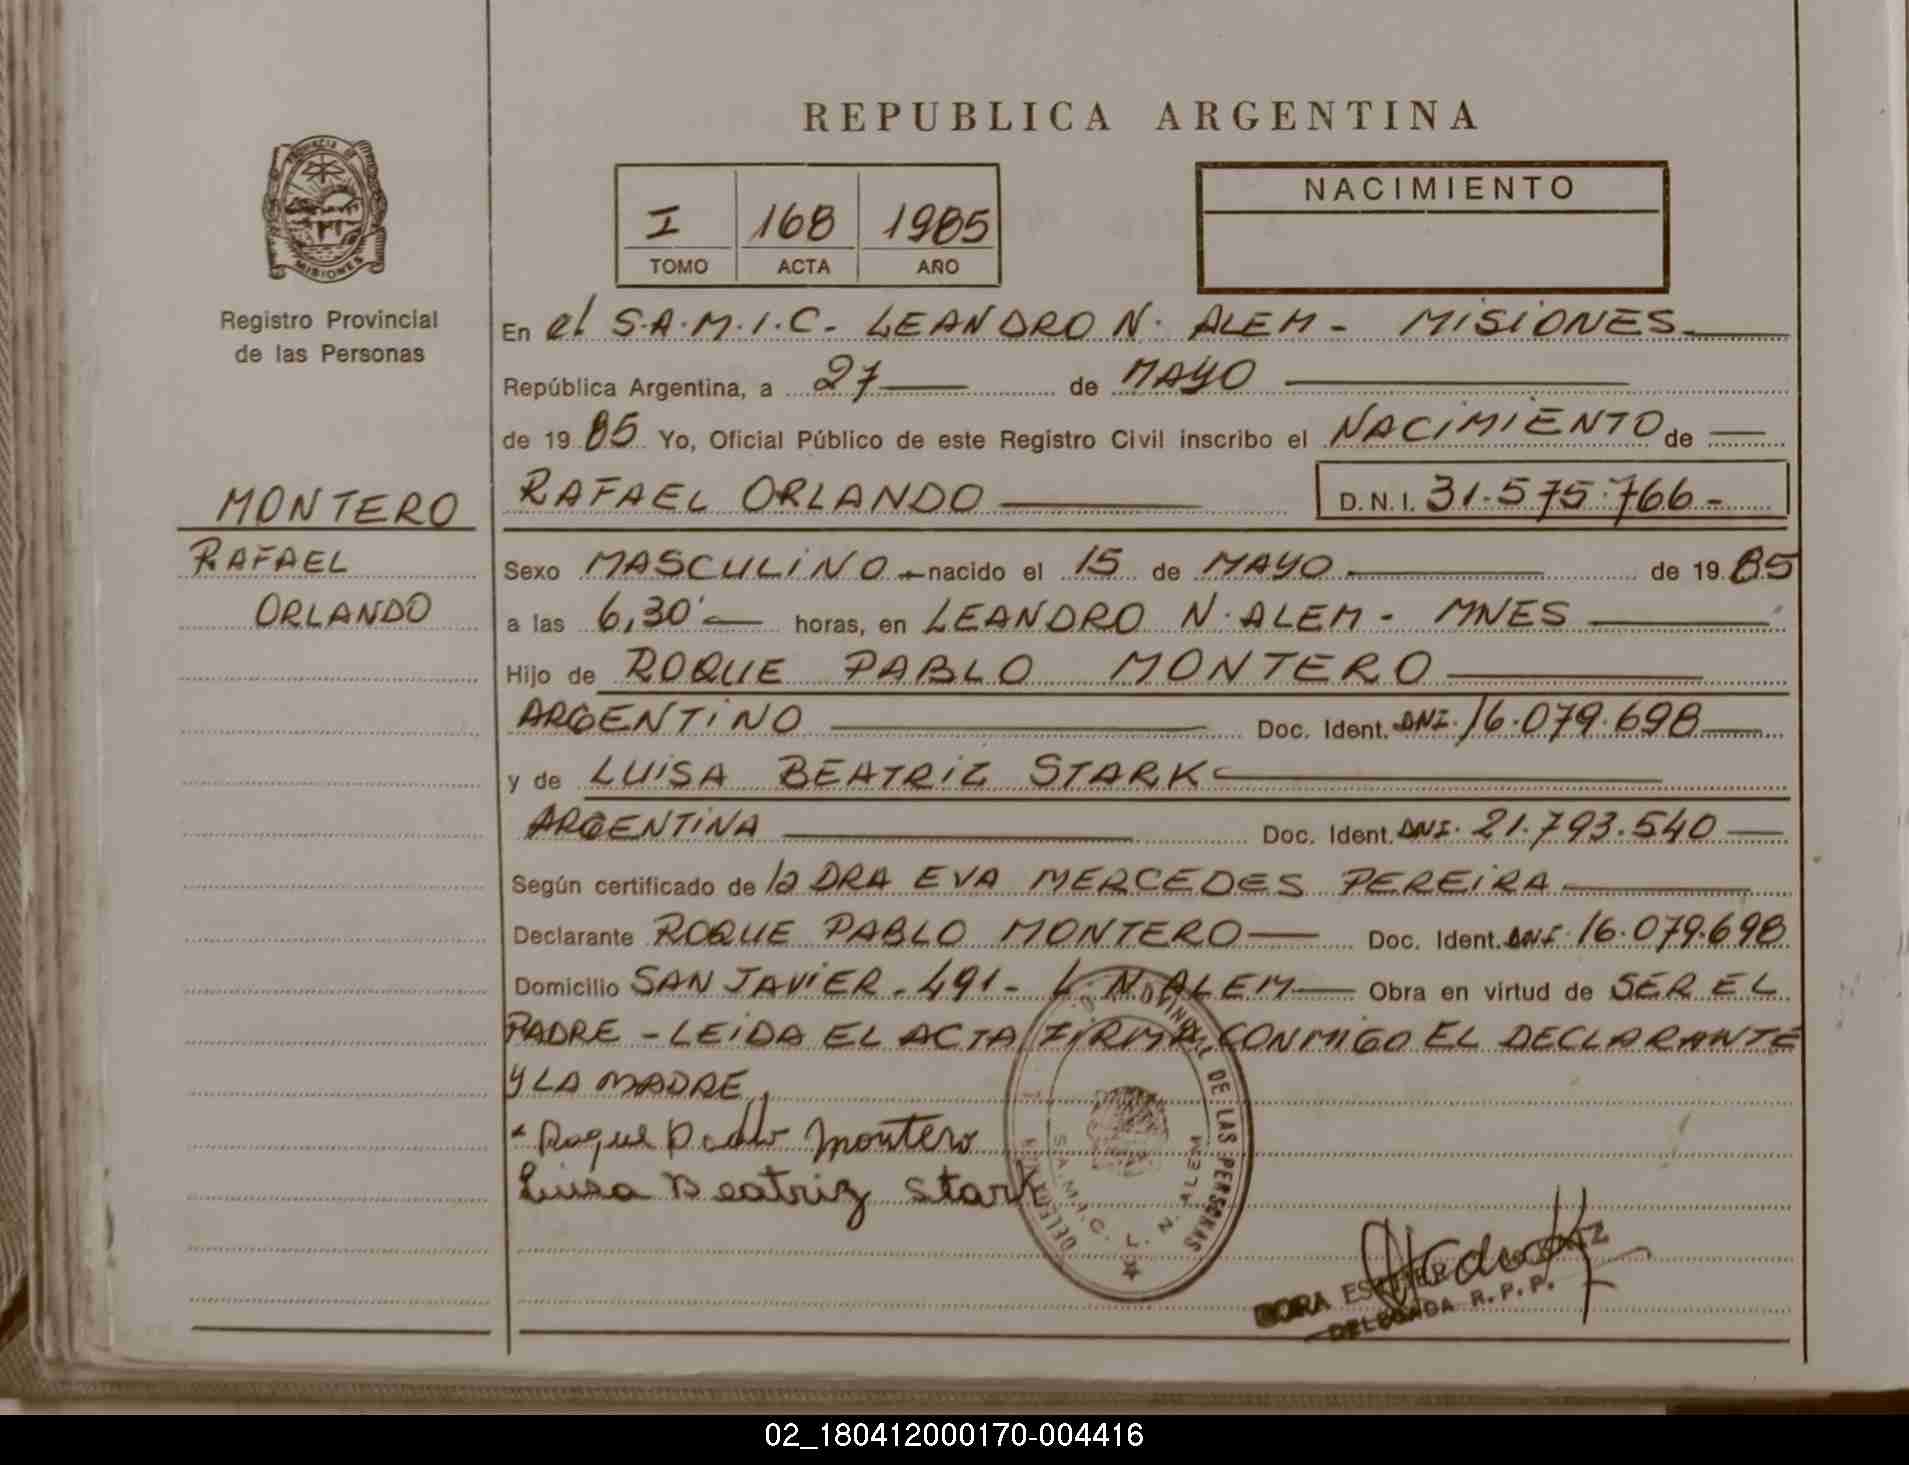 REPUBLICA ARGENTINA
PROVINCIA DE
MISIONES
Registro Provincial
de las Personas
I 168 1985
TOMO ACTA AÑO
NACIMIENTO
En el S.A.M.I.C. - LEANDRO N. ALEM - MISIONES
República Argentina, a 27 de MAYO
de 19 85 Yo, Oficial Público de este Registro Civil inscribo el NACIMIENTO de
MONTERO
RAFAEL ORLANDO D.N.I. 31.575.766 -
RAFAEL
ORLANDO
Sexo MASCULINO - nacido el 15 de MAYO de 19 85
a las 6,30' horas, en LEANDRO N. ALEM - MNES
Hijo de ROQUE PABLO MONTERO
ARGENTINO Doc. Ident. DNI. 16.079.698
y de LUISA BEATRIZ STARK
ARGENTINA Doc. Ident. DNI. 21.793.540
Según certificado de la DRA EVA MERCEDES PEREIRA
Declarante ROQUE PABLO MONTERO Doc. Ident. DNI 16.079.698
Domicilio SAN JAVIER - 491 - L. N. ALEM Obra en virtud de SER EL
PADRE - LEIDA EL ACTA FIRMA CONMIGO EL DECLARANTE
Y LA MADRE
Roque Pablo Montero
Luisa Beatriz Stark
DE LAS PERSONAS
S.A.M.I.C. L. N. ALEM
DORA ESTHER
DELEGADA R.P.P.
02_180412000170-004416